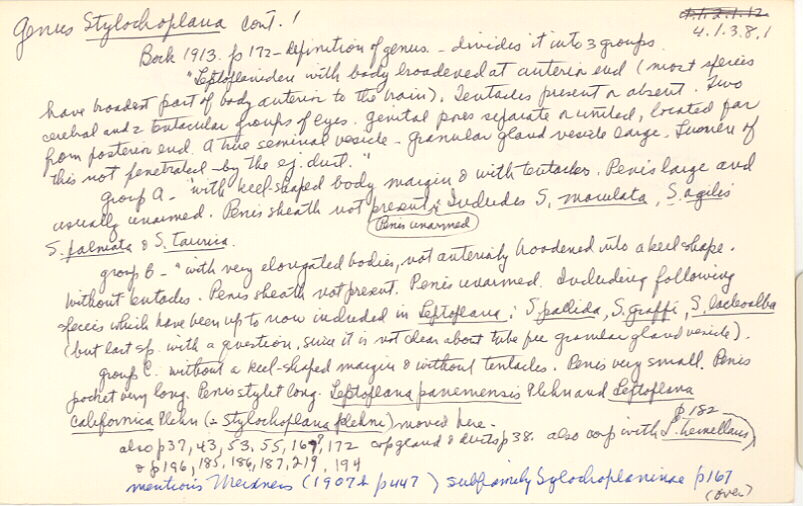 Genus Stylochoplana cont. 1
4.1.2.1.12
4.1.3.8.1
Bock 1913. p 172 - definition of genus. - divides it into 3 groups.
"Leptoplaniden with body broadened at anterior end (most species
have broadest part of body anterior to the brain). Tentacles present or absent. Two
cerebral and 2 tentacular groups of eyes. Genital pores separate or united, located far
from posterior end. A true seminal vesicle - granular gland vesicle large. Lumen of
this not penetrated by the ej. duct."
group A - "with keel-shaped body margin & with tentacles. Penis large and
usually unarmed. Penis sheath not present; Includes S. maculata, S. agilis
Penis unarmed
S. palmata & S. taurica.
group B - "with very elongated bodies, not anteriorly broadened into a keel shape.
Without tentacles. Penis sheath not present. Penis unarmed. Including following
species which have been up to now included in Leptoplana; S. pallida, S. graffi, S. lacteoalba
(but last sp. with a question, since it is not clear about tube free granular gland vesicle).
group C. without a keel-shaped margin & without tentacles. Penis very small. Penis
pocket very long. Penis stylet long. Leptoplana panamensis Plehn and Leptoplana
californica Plehn (= Stylochoplana plehni) moved here.
p 182
also p 37, 43, 53, 55, 169, 172 cop gland & ducts p 38. also comp with
& p 196, 185, 186, 187, 219, 194
mentions Meixners (1907b p 447) subfamily Sylochoplaninae p 167
(over)